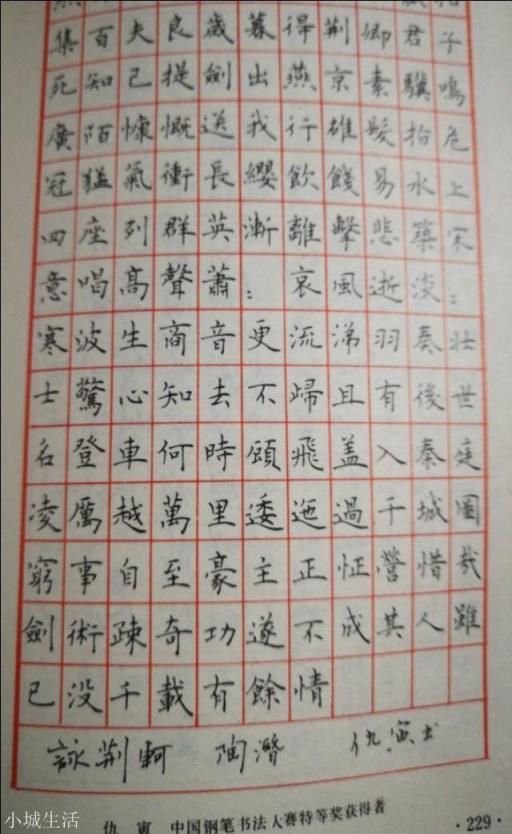 集百夫良歲暮得荆卿君子
死知己提劍出燕京素驥鳴
廣陌慷慨送我行雄髮指危
冠猛氣衝長纓飲餞易水上
四座列群英漸離擊悲築宋
意唱高聲蕭:哀風逝淡:
寒波生商音更流涕羽奏壯
士驚心知去不歸且有後世
名登車何時頋飛盖入秦庭
凌厲越萬里逶迤過千城圖
窮事自至豪主正怔營惜哉
劍術疎奇功遂不成其人雖
已没千載有餘情
詠荆軻 陶潛 仇寅书
仇寅 中国钢笔书法大赛特等奖获得者
·229·
小城生活